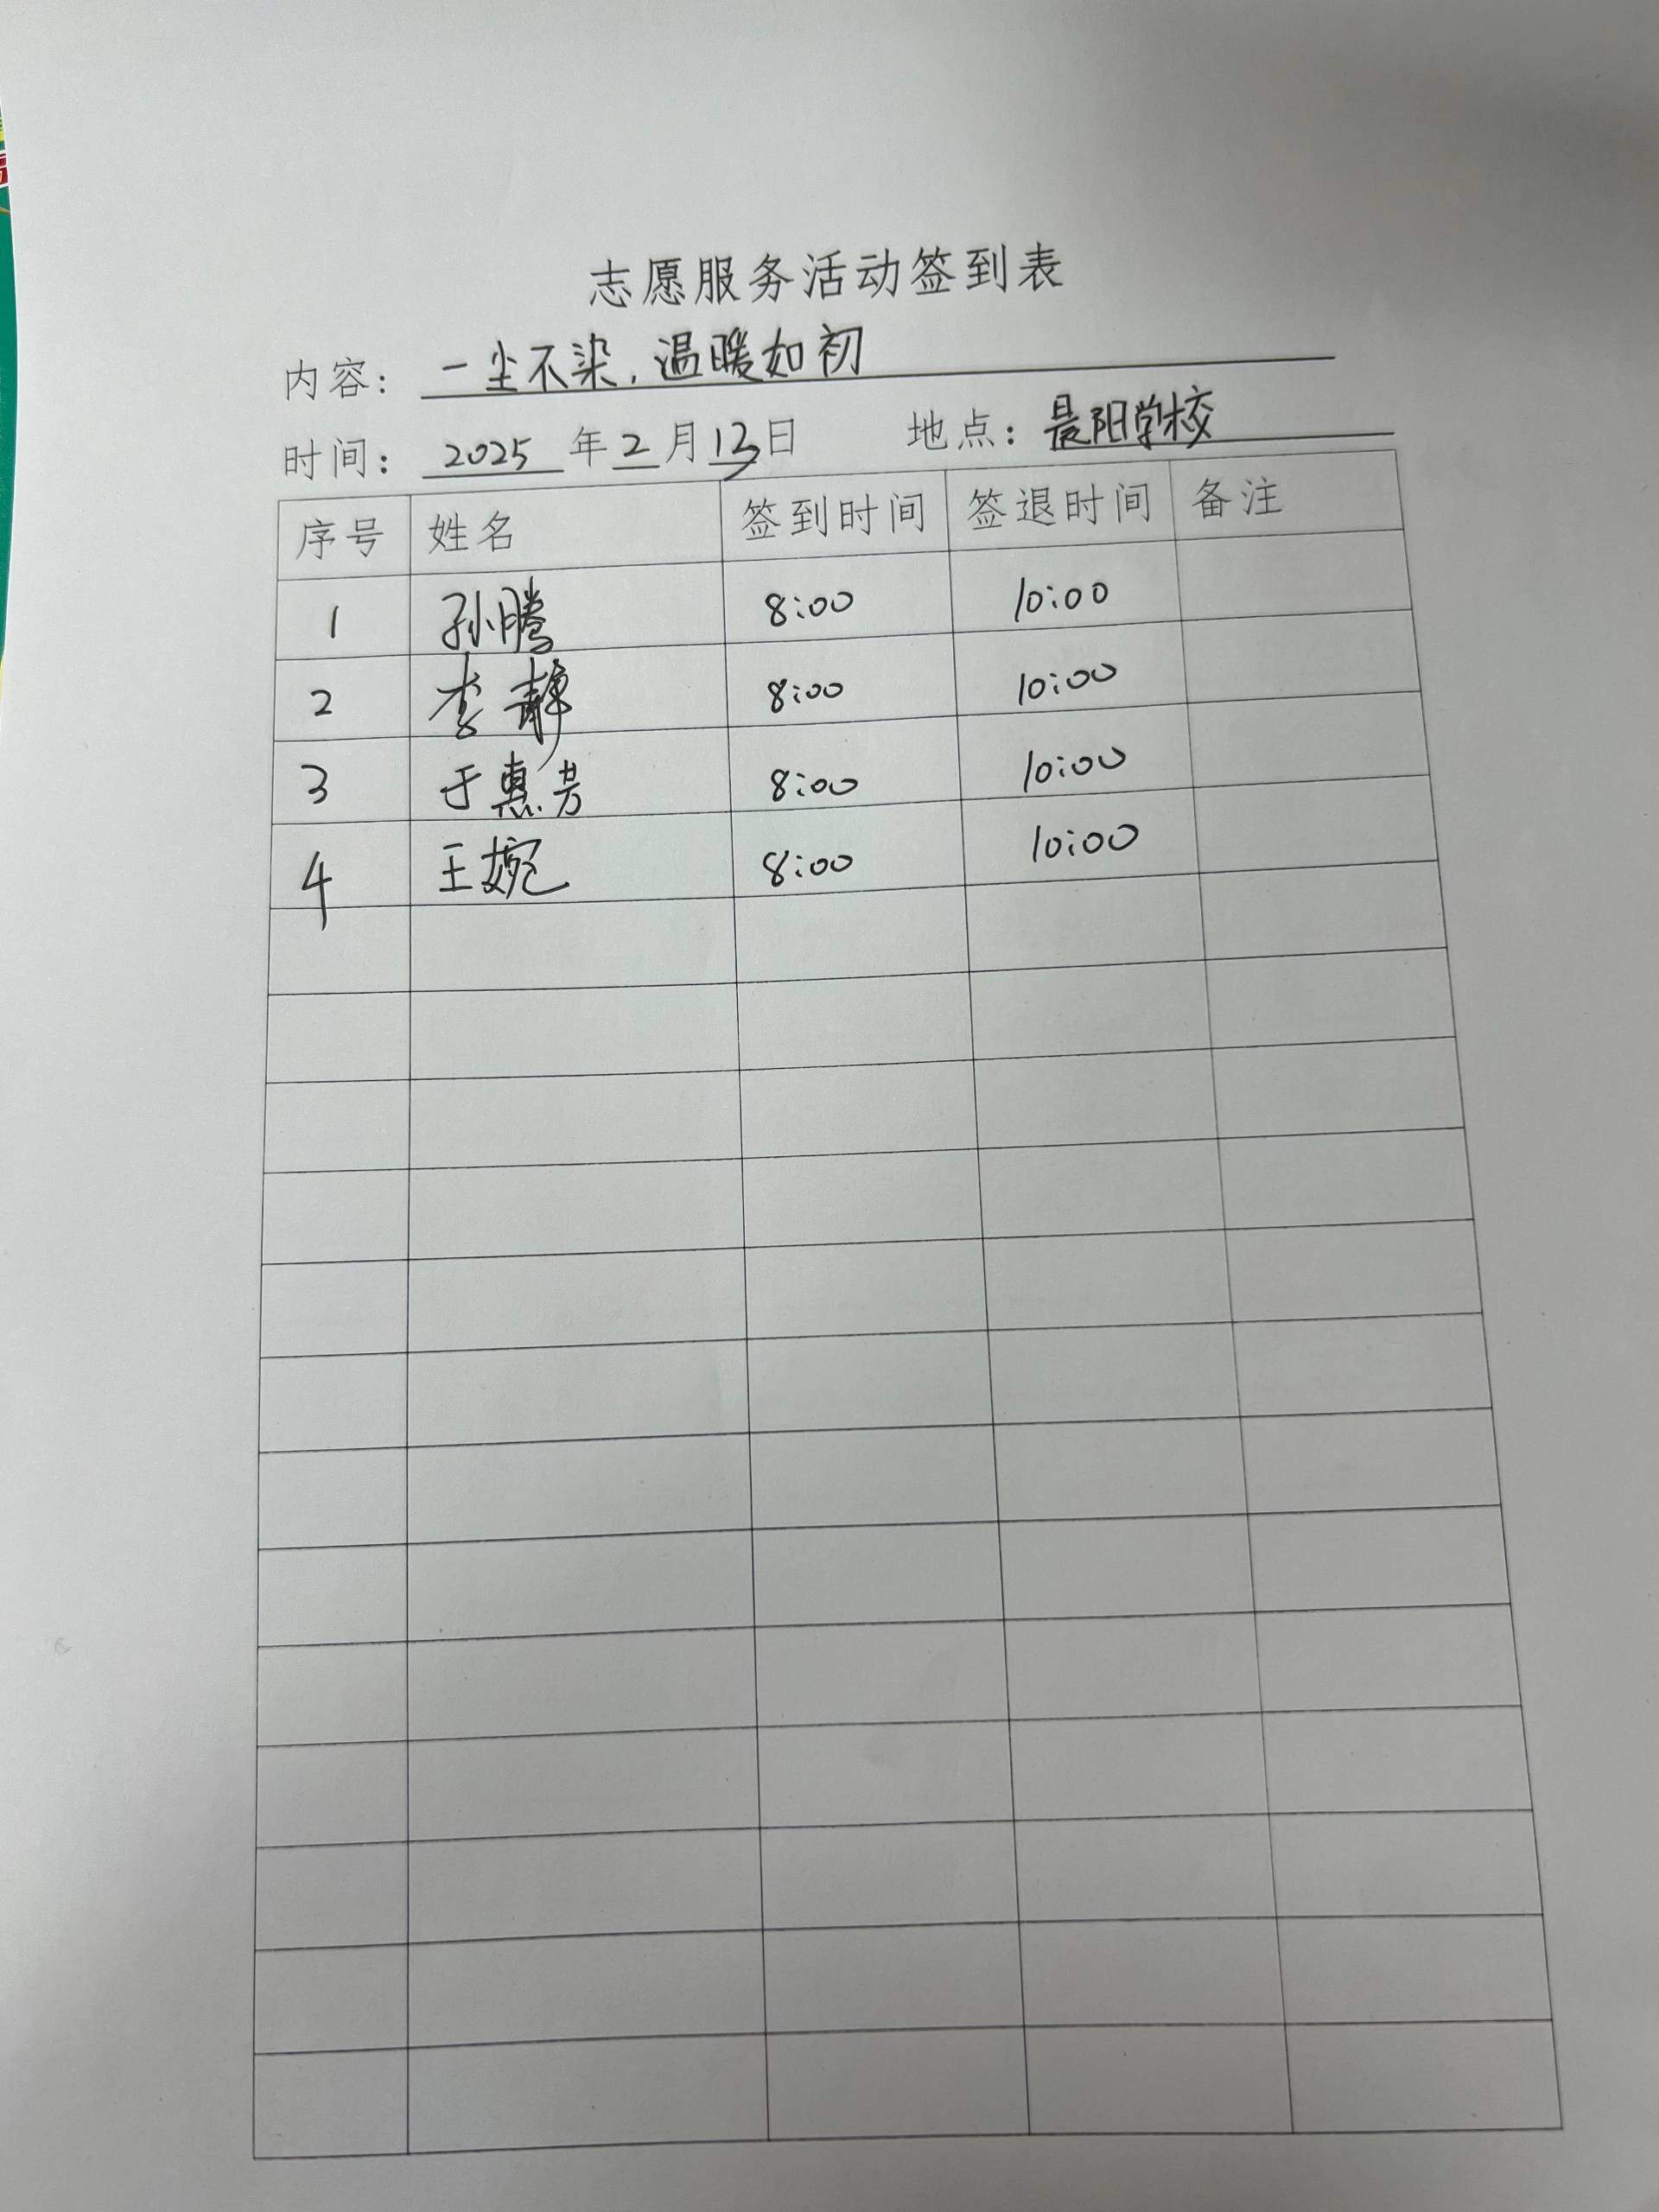 志愿服务活动签到表
内容：一尘不染，温暖如初
时间：2025年2月13日 地点：晨阳学校
序号 姓名 签到时间 签退时间 备注
1 孙腾 8:00 10:00
2 李静 8:00 10:00
3 于惠芳 8:00 10:00
4 王婉 8:00 10:00